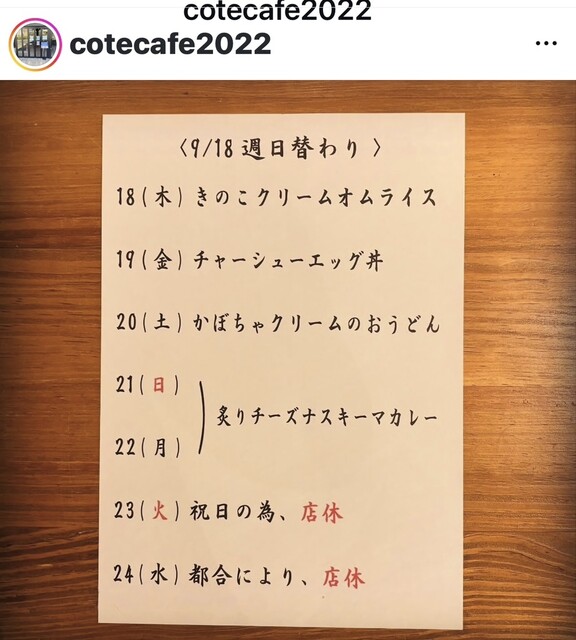 cotecafe2022
cotecafe2022
〈9/18 週日替わり 〉
18(木)きのこクリームオムライス
19(金)チャーシューエッグ丼
20(土)かぼちゃクリームのおうどん
21(日)
炙りチーズナスキーマカレー
22(月)
23(火)祝日の為、店休
24(水)都合により、店休